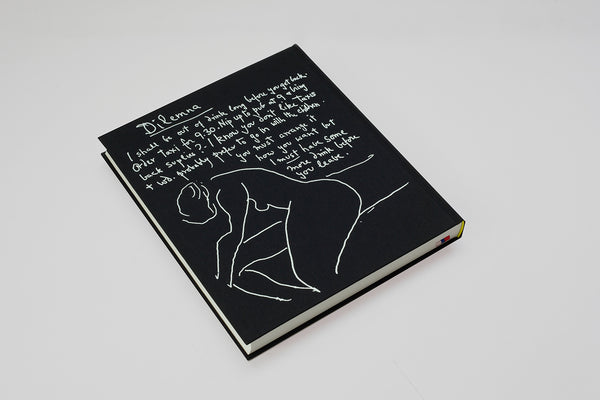 Dilemna
I shall be out of drink long before you get back.
Order Taxi for 9.30. Nip up to pub at 9 & bring
back suplies?. I know you don't like Taxis
+ wd. probably prefer to go in with the children.
you must arrange it
how you want but
I must have some
more drink before
you leave.